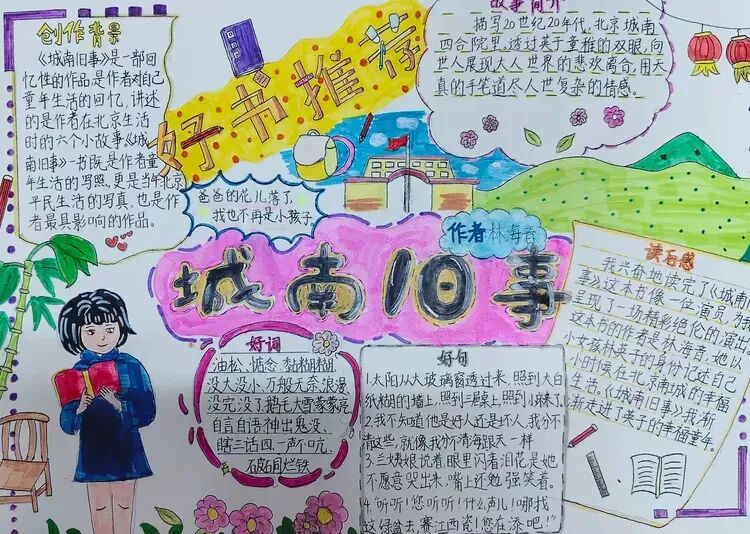 创作背景
《城南旧事》是一部回
忆性的作品是作者对自己
童年生活的回忆,讲述
的是作者在北京生活
时的六个小故事《城
南旧事》一书既是作者童
年生活的写照,更是当年北京
平民生活的写真,也是作
者最具影响的作品。
好书推荐
故事简介
描写20世纪20年代,北京城南
四合院里,透过英子童稚的双眼,向
世人展现大人世界的悲欢离合,用天
真的手笔道尽人世复杂的情感。
爸爸的花儿落了,
我也不再是小孩子
作者林海音
城南旧事
读后感
我兴奋地读完了《城南
事》这本书像一位演员,为我
呈现了一场精彩绝伦的演出
这本书的作者是林海音,她以
小女孩林英子的身份记述自己
小时候在北京南城的幸福
生活。《城南旧事》我渐
渐走进了英子的幸福童年。
好词
油松、惦念、黏糊糊、
没大没小、万般无奈、浪漫、
没完没了、鹅毛大雪蒙蒙亮
自言自语神出鬼没、
瞎三话四、一声不吭、
破铜烂铁
好句
1.太阳从大玻璃窗透过来,照到大白
纸糊的墙上,照到三屉桌上,照到小床上了。
2.我不知道他是好人还是坏人,我分不
清这些,就像我分不清海跟天一样
3.兰姨娘说着,眼里闪着泪花是她
不愿意哭出来,嘴上还勉强笑着。
4.“听听!您听听!什么声儿!哪找
这绿盆去,赛江西瓷!您在添吧!”